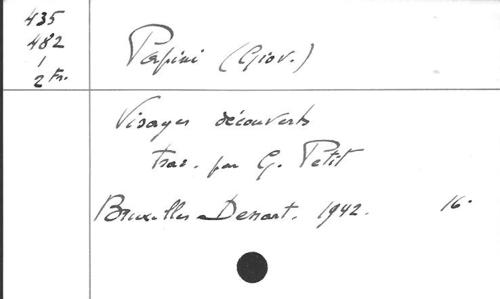 435
482
1
2 Fr.
Papini (Giov.)
Visages découverts
trad. par G. Petit
Bruxelles Dessart. 1942. 16.